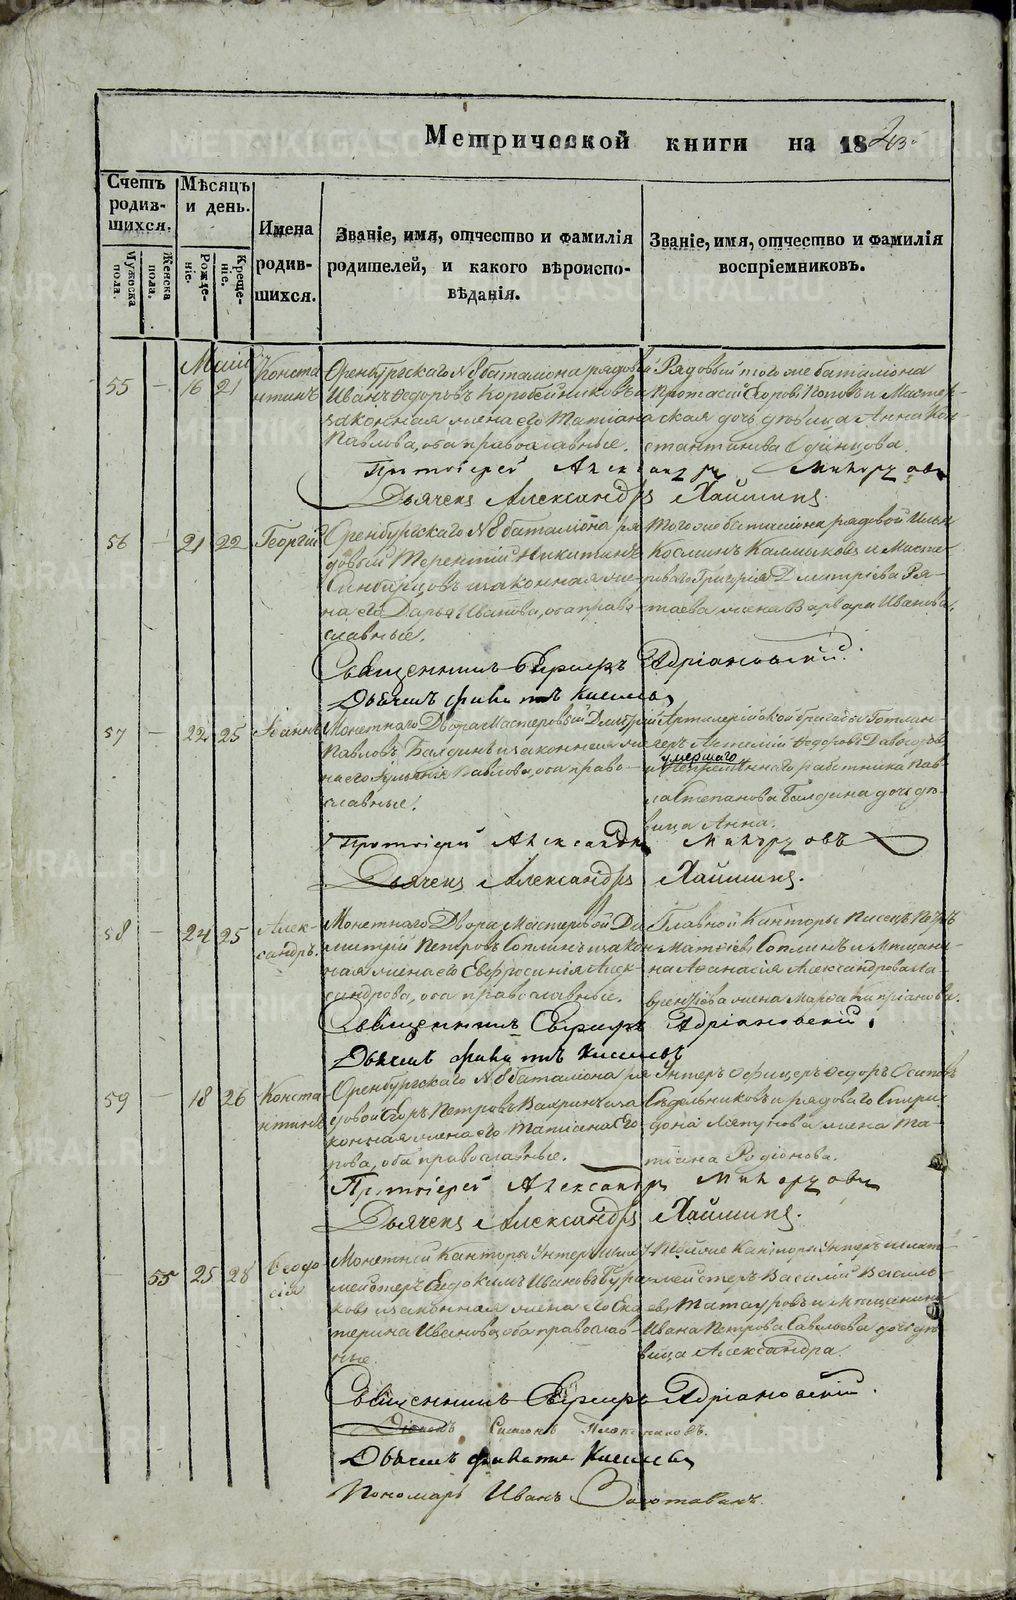 Метрической книги на 18
Счетъ родив-шихся.
Мѣсяцъ и день.
Имена родив-шихся.
Званіе, имя, отчество и фамилія родителей, и какого вѣроиспо-вѣданія.
Званіе, имя, отчество и фамилія воспріемниковъ.
Мужеска пола.
Женска пола.
Рожде-ніе.
Креще-ніе.
Маій
55 — 16 21
Конста
нтинъ
Оренбургскаго №8 баталіона рядовый
Иванъ Ѳедоровъ Коробейниковъ и
законная жена его Татіана
Павлова, оба православные.
Рядовый того же баталіона
Протасій Егоровъ Поповъ и Мастер-
ская дочь дѣвица Анна Кон-
стантинова Одинцова.
Протоіерей Александръ
Дьячекъ Александръ
56 — 21 22
Георгій
Оренбургскаго №8 баталіона ря-
довый Терентій Никитинъ
и законная же-
на его Дарья Иванова, оба право-
славные.
Того же баталіона рядовой
Косминъ Калмыковъ и Масте-
роваго Григорія Дмитріева
жена Варвара Иванова.
Священникъ Адріановскій.
Дьячекъ Киселевъ
57 — 22 25
Іоаннъ
Монетнаго Двора Мастеровый Дмитрій
Павловъ Балдинъ и законная же-
на его Павлова, оба право-
славные.
Артилерійской бригады
Артемій Ѳедоровъ Давыдовъ
умершаго
и Непремѣннаго работника Пав-
ла Степанова Балдина дочь дѣ-
вица Анна.
Протоіерей Александръ
Дьячекъ Александръ
58 — 24 25
Алек-
сандръ.
Монетнаго Двора Мастеровой Ди-
митрій Петровъ Соплинъ и закон-
ная жена его Евфросинія Алек-
сандрова, оба православные.
Главной Канторы Писецъ Петръ
Матѳіевъ Соплинъ и Мѣщани-
на Аѳанасія Александрова Ла-
врентіева жена Марѳа Кипріанова.
Священникъ Адріановскій.
Дьячекъ Киселевъ
59 — 18 26
Конста
нтинъ
Оренбургскаго №8 баталіона ря-
довой Егоръ Петровъ и за-
конная жена его Татіана Его-
рова, оба православные.
Унтеръ Офицеръ Ѳедоръ Осиповъ
Сѣдельниковъ и рядоваго Спири-
дона Ляпунова жена Та-
тіана Родіонова.
Протоіерей Александръ
Дьячекъ Александръ
— 55 25 28
Ѳеодо
сія
Монетной Канторы Унтеръ Шихт-
мейстеръ Евдокимъ Ивановъ
и законная жена его Ека-
терина Иванова, оба православ-
ные.
Той же Канторы Унтеръ шихт-
мейстеръ Василій Василь-
евъ Татауровъ и Мѣщанина
Ивана Петрова Савельева дочь дѣ-
вица Александра.
Священникъ Адріановскій.
Діаконъ Симеонъ
Дьячекъ Киселевъ
Пономарь Иванъ
METRIKI.GASO-URAL.RU